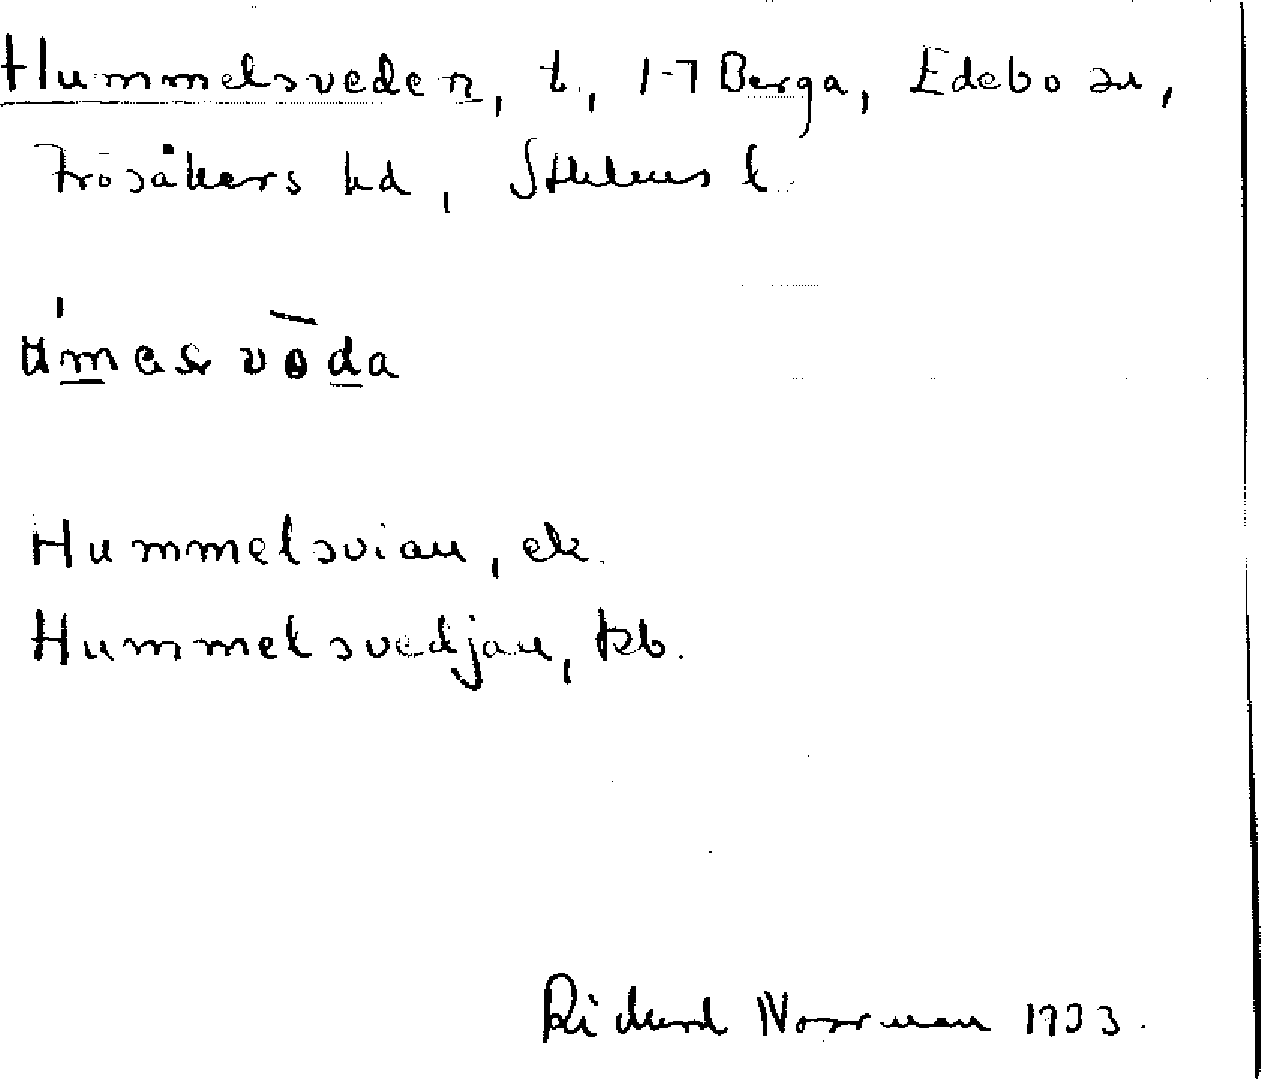 Hummelsveden, t., 1-7 Berga, Edebo sn,
Frösåkers hd, Sthlms l.
Hummelsvian, ek.
Hummelsvedjan, kb.
Richard Norrman 1933.